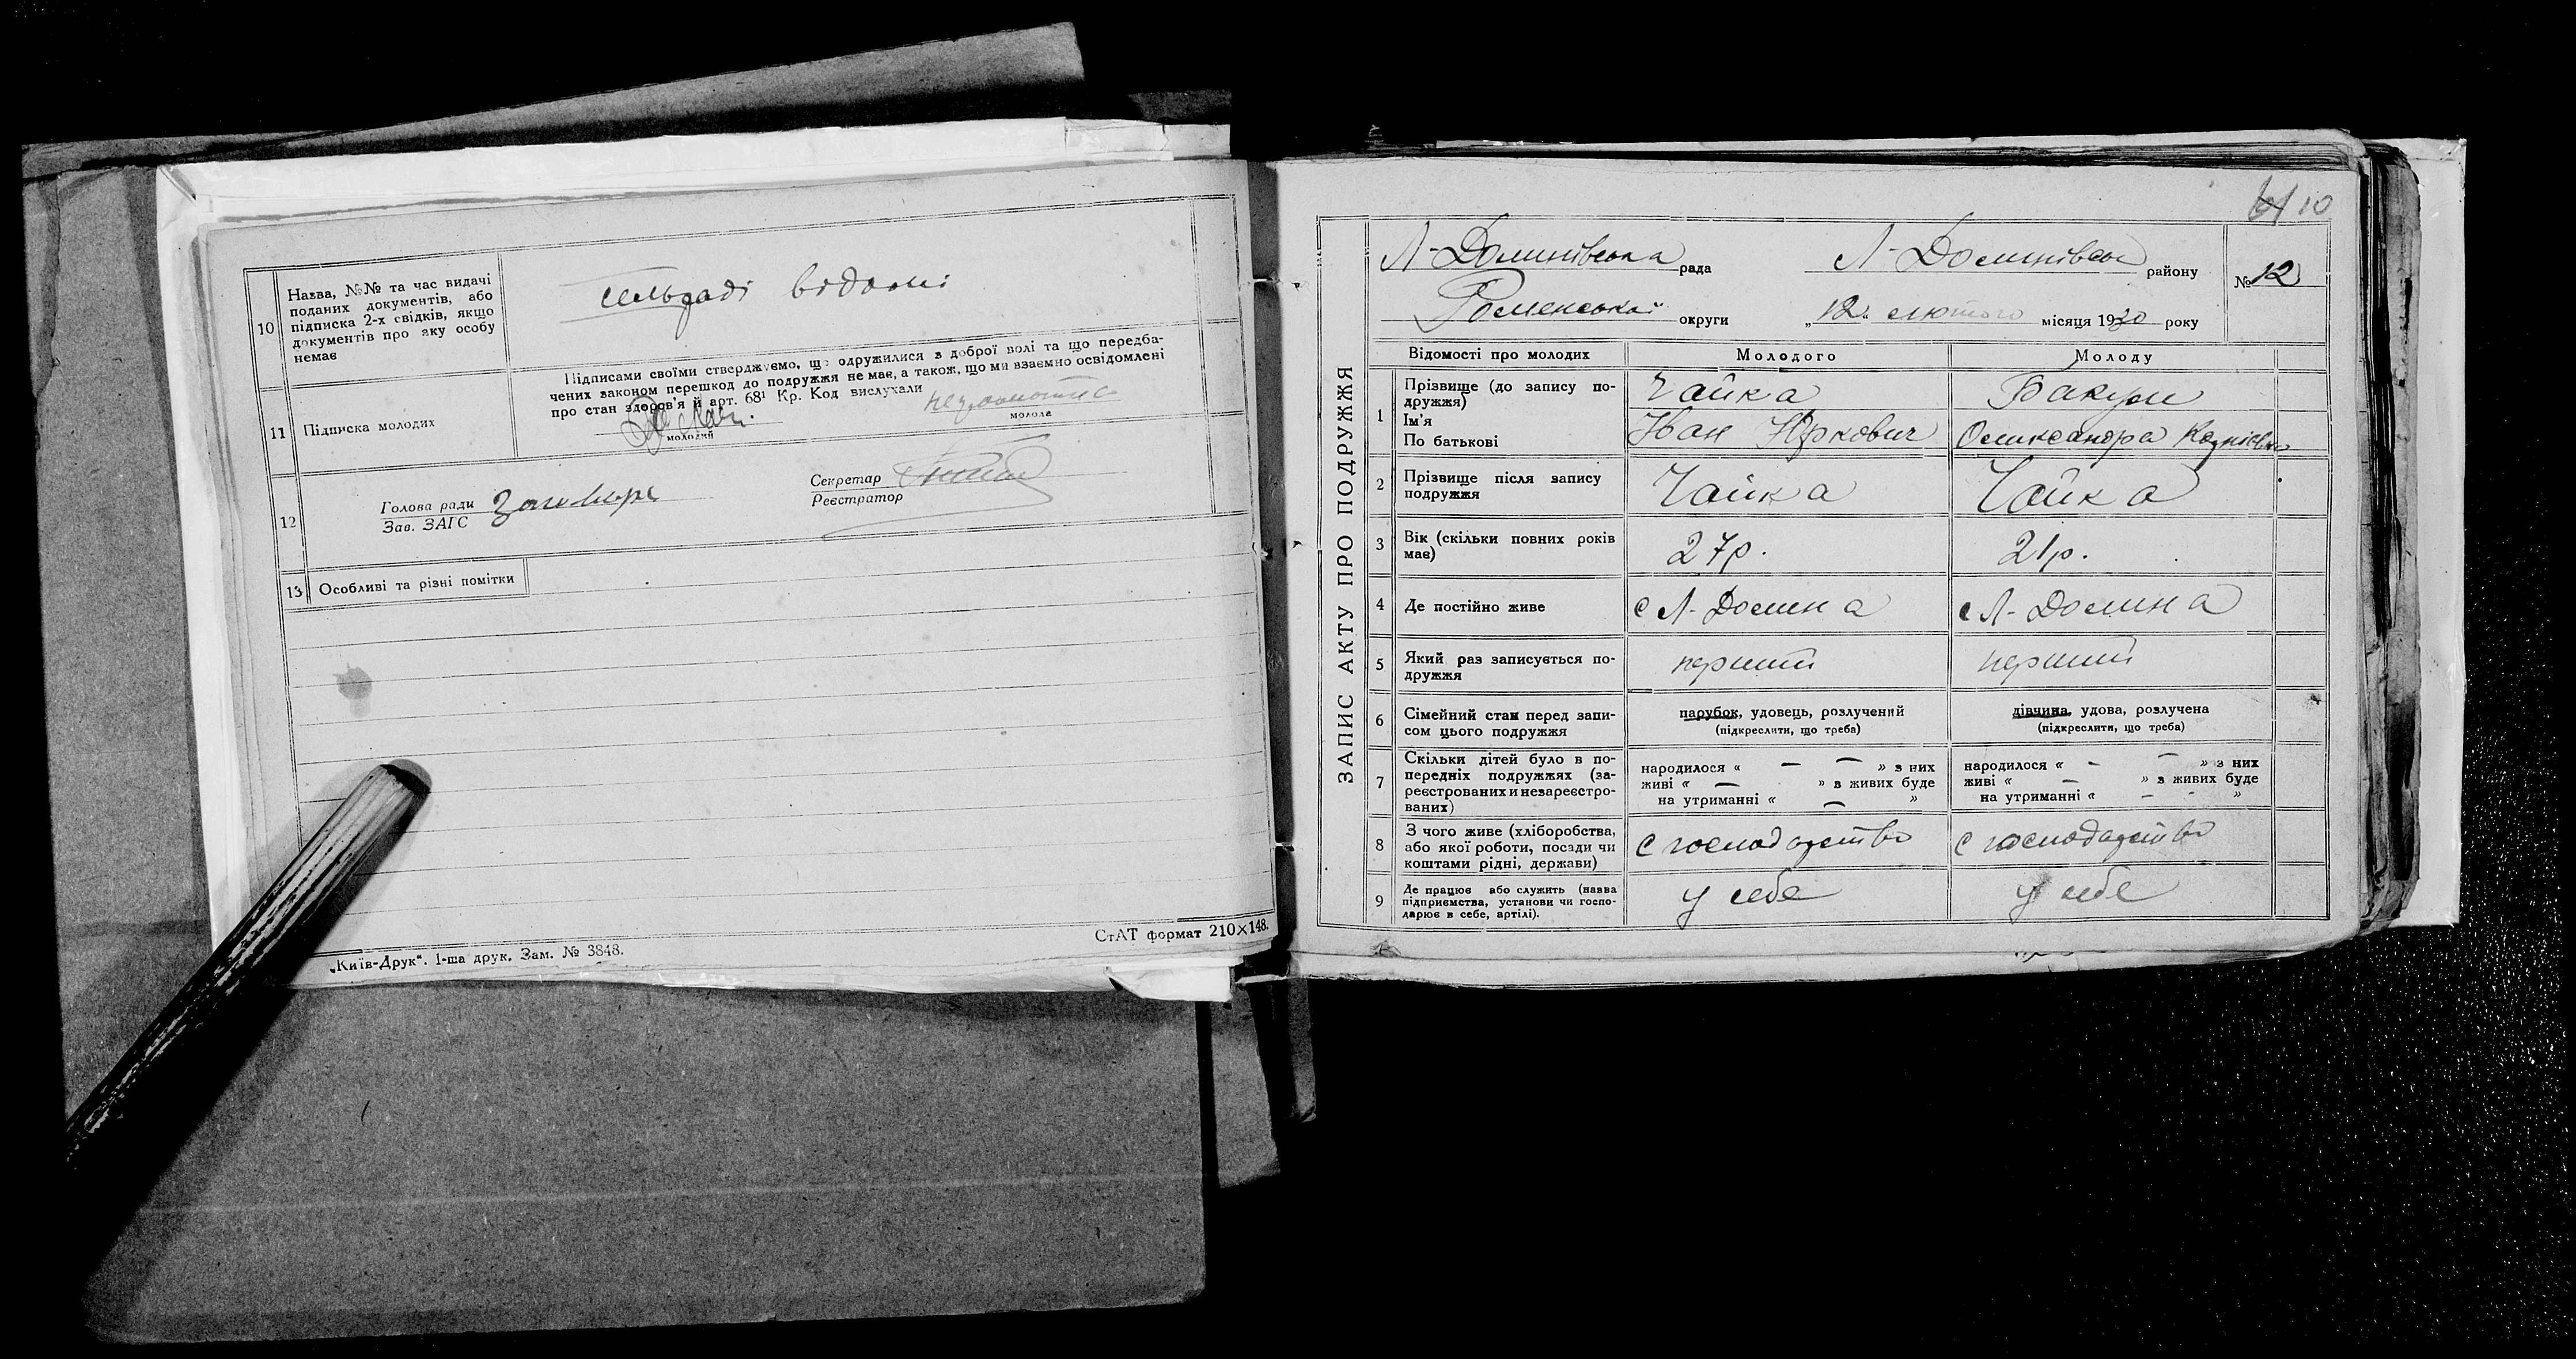 10
Назва, №№ та час видачі
поданих документів, або
підписка 2-х свідків, якщо
документів про яку особу
немає
сельраді відомі
11
Підписка молодих
Підписами своїми стверджуємо, що одружилися з доброї волі та що передба-
чених законом перешкод до подружжя немає, а також, що ми взаємно освідомлені
про стан здоров'я й арт. 68¹ Кр. Код вислухали
неграмотна
молодий
молода
12
Голова ради
Зав. ЗАГС
Секретар
Реєстратор
13
Особливі та різні помітки
„Київ-Друк“. І-ша друк. Зам. № 3848.
СтАТ формат 210×148.
10
ЗАПИС АКТУ ПРО ПОДРУЖЖЯ
Л-Долинівська рада Л-Долинівськ району
№ 12
Роменської округи „12“ лютого місяця 1930 року
Відомості про молодих Молодого Молоду
1
Прізвище (до запису по-
дружжя)
Ім'я
По батькові
Чайка
Іван Юркович
Бакум
Олександра
2
Прізвище після запису
подружжя
Чайка Чайка
3
Вік (скільки повних років
має)
27р. 21р.
4
Де постійно живе
с Л-Долина с Л-Долина
5
Який раз записується по-
дружжя
перший перший
6
Сімейний стан перед запи-
сом цього подружжя
парубок, удовець, розлучений
(підкреслити, що треба)
дівчина, удова, розлучена
(підкреслити, що треба)
7
Скільки дітей було в по-
передніх подружжях (за-
реєстрованих и незареєстро-
ваних)
народилося « — — » з них
живі « — » в живих буде
на утриманні « — »
народилося « - — » з них
живі « — » з живих буде
на утриманні « — - »
8
З чого живе (хліборобства,
або якої роботи, посади чи
коштами рідні, держави)
с господарство с господарство
9
Де працює або служить (назва
підприємства, установи чи госпо-
дарює в себе, артілі).
у себе у себе